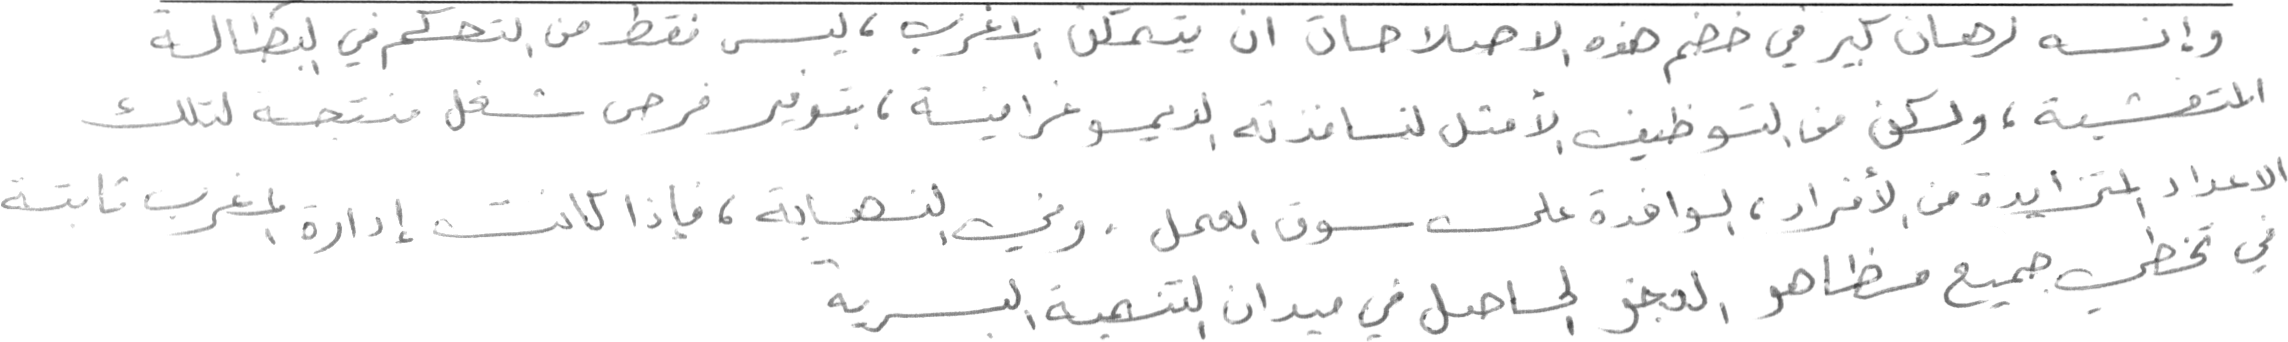 وإنه لرهان كبير في خضم هذه الاصلاحات ان يتمكن المغرب، ليس فقط من التحكم في البطالة
المتفشية، ولكن من التوظيف الأمثل لنافذته الديموغرافية، بتوفير فرص شغل منتجة لتلك
الاعداد المتزايدة من الأفراد، الوافدة على سوق العمل. وفي النهاية، فإذا كانت إدارة المغرب ثابتة
في تخطي جميع مظاهر العجز الحاصل في ميدان التنمية البشرية